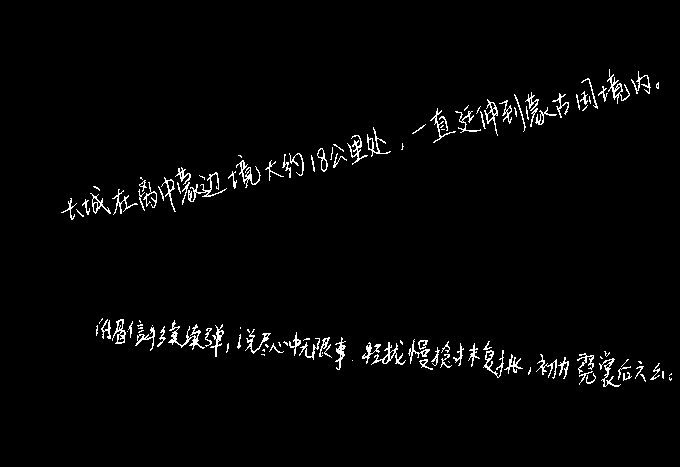 长城在离中蒙边境大约18公里处，一直延伸到蒙古国境内。
低眉信手续续弹，说尽心中无限事.轻拢慢捻抹复挑，初为霓裳后六幺。